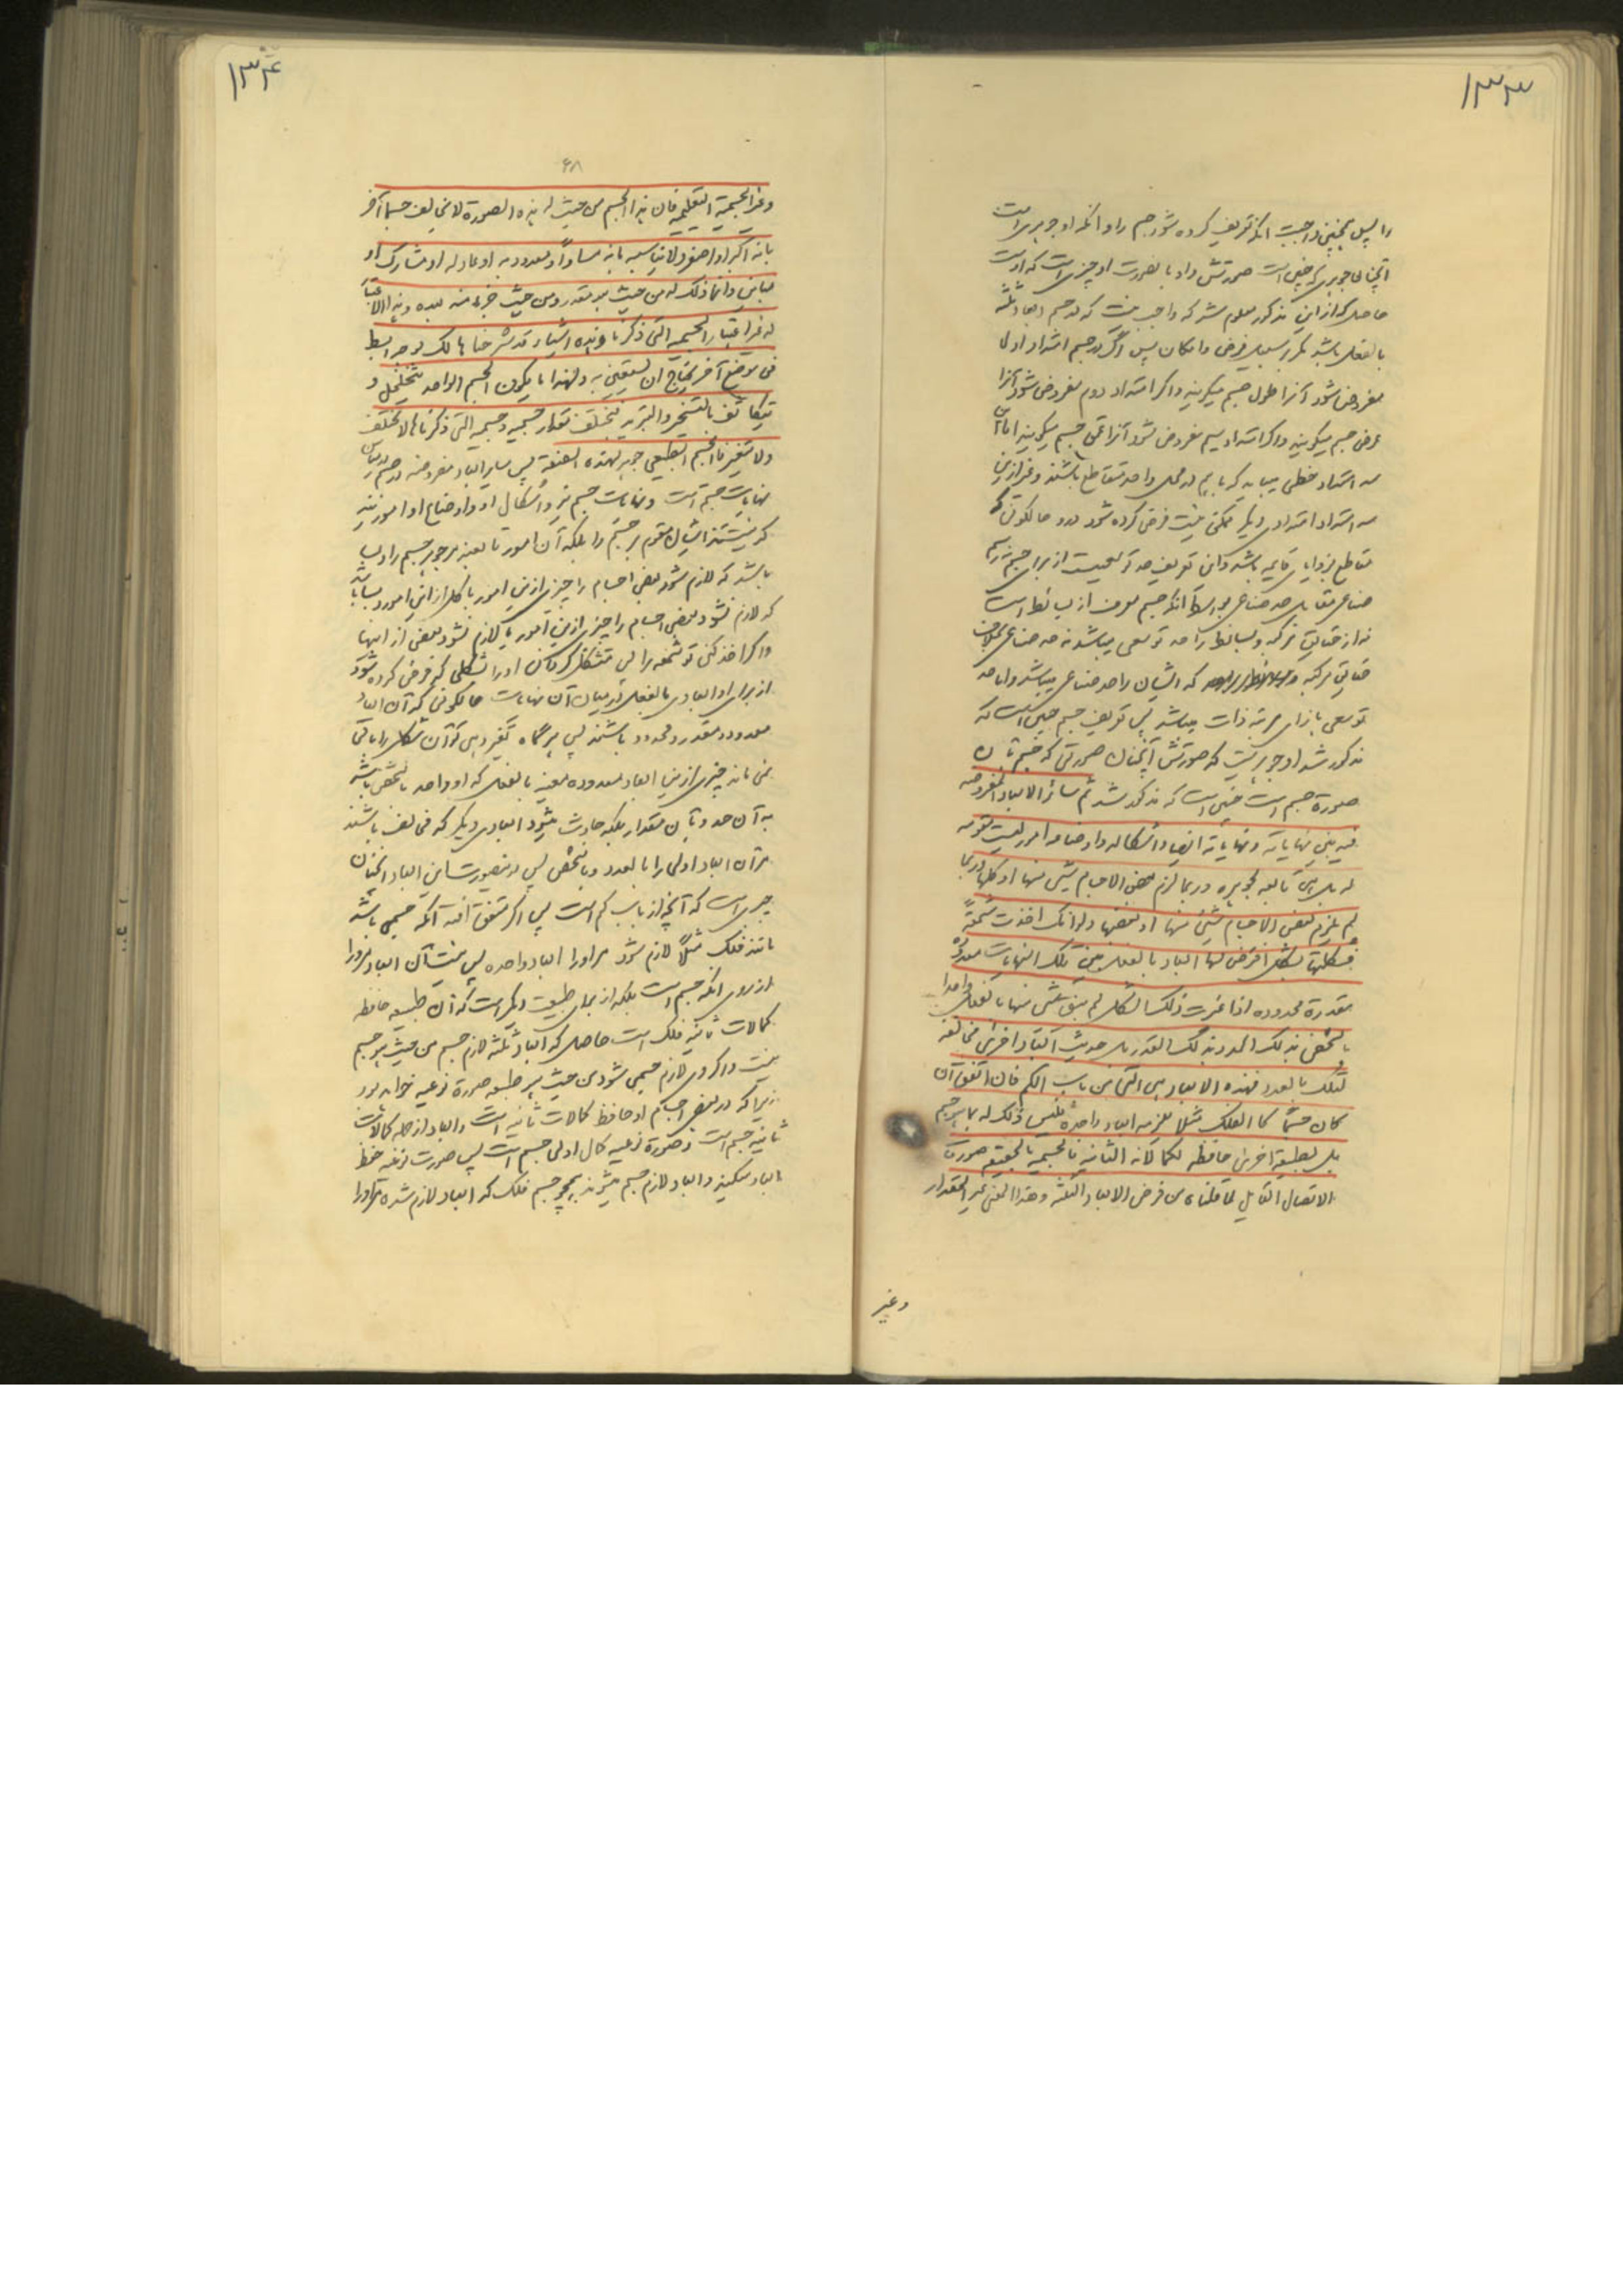 ۱۳۳
را پس همچنین واجبست انکه تعریف کرده شود جسم را و انکه او جوهری است
آنچنانی جوهری که چنین است صورتش و او با نصورت او چیزی است که اوست
حاصل که از این مذکور معلوم شد که واجب نیست که در جسم ابعاد ثلثه
بالفعل باشد مکر بر سبیل فرض و امکان پس اگر در جسم امتداد اولا
مفروض شود آنرا طول جسم میکویند و اکر امتداد دوم مفروض شود آنرا
عرض جسم میکویند و اکر امتداد سیم مفروض شود آنرا عمق جسم میکویند اما این
سه امتداد خطی میباید که باهم در محل واحد متقاطع باشند و غیر ازین
سه امتداد امتدادی دیکر ممکن نیست فرض کرده شود درو حالکونی که
متقاطع بزوایای قایمه باشد و این تعریف حد توسعیست از برای جسم نه رسم
صناعی مقابل حد صناعی بواسطه آنکه جسم معرف از بسایط است
نه از حقایق مرکبه و بسایط را حد توسعی میباشد نه حد صناعی بخلاف
حقایق مرکبه که ایشان را حد صناعی میباشد و اما حد
توسعی بازای مرتبه ذات میباشد پس تعریف جسم چنین است که
مذکور شد او جوهریست که صورتش آنچنان صورتی که جسم بآن
صورة جسم است چنین است که مذکور شد ثم سائر الابعاد المفروضه
فیه بین نهایاته و نهایاته ایضا و اشکاله و اوضاعه امور لیست مقومه
له بل هی تابعه لجوهره و ربما لزم بعض الاجسام شیئ منها او کلها و ربما
لم یلزم بعض الاجسام شیئ منها او بعضها و لو انک اخذت شمعة
فشکلتها بشکل افترض لها ابعاد بالفعل بین تلک النهایات معدوده
مقدرة محدوده اذا غیرت ذلک الشکل لم یبق شیئ منها بالفعل واحدا
بالشخص بذلک الحد و بذلک القدر بل حدثت ابعاد اخری مخالفه
لتلک بالعدد فهذه الابعاد هی التی من باب الکم فان اتفق ان
کان جسما کالفلک مثلا یلزمه ابعاد واحدة فلیس ذلک له بما هو جسم
بل لطبیعة اخری حافظه لکمالاته الثانیه فالجسمیه بالحقیقه صورت
الاتصال القابل لما قلناه من فرض الابعاد الثلثه و هذا المعنی غیر المقدار
وغیر
۱۳۴
۶۸
وغیر الجسمیة التعلیمیه فان هذا الجسم من حیث له هذه الصورة لا یخالف جسما آخر
بانه اکبر او اصغر و لا یناسبه بانه مساو او معدود به او عاد له او مشارک او
مباین و انما ذلک له من حیث هو مقدر و من حیث جزء منه یعده و هذا الاعتبار
له غیر اعتبار الجسمیه التی ذکرنا و هذه اشیاء قد شرحناها لک بوجه ابسط
فی موضع آخر یحتاج ان تستعین به و لهذا ما یکون الجسم الواحد یتخلخل و
یتکاثف بالتسخن و التبرید فیختلف مقدار جسمیه و جسمیه التی ذکرناها لا تختلف
و لا تتغیر فالجسم الطبیعی جوهر بهذه الصفة پس سایر ابعاد مفروضه در جسم در میان
نهایات جسم است و نهایات جسم نیز و اشکال او و اوضاع او امورند
که نیستند ایشان مقوم مر جسم را بلکه آن امور تابعند مر جوهر جسم را و بسا
باشد که لازم شود بعض اجسام را چیزی ازین امور یا کل از این امور و بسا باشد
که لازم نشود بعضی اجسام را چیزی ازین امور یا لازم نشود بعضی از اینها
و اگر اخذ کنی تو شمعه را پس متشکل کردانی او را بشکلی که فرض کرده شود
از برای او ابعادی بالفعل در میان آن نهایات حالکونی که آن ابعاد
معدود و مقدر و محدود باشند پس هرگاه تغیر دهی تو آن شکل را باقی
نمی ماند چیزی ازین ابعاد معدوده معینه بالفعل که او واحد بالشخص باشد
به آن حد و بآن مقدار بلکه حادث میشود ابعادی دیکر که مخالف باشند
مر آن ابعاد اولی را بالعدد و بالشخص پس درینصورت این ابعاد آنچنان
چیزی است که آنچه از باب کم است پس اکر متفق افتد آنکه جسمی باشد
مانند فلک مثلا لازم شود مر او را ابعاد واحده پس نیست آن ابعاد مر او را
از روی انکه جسم است بلکه از برای طبیعت دیکر است که آن طبیعه حافظه
کمالات ثانیه فلک است حاصل که ابعاد ثلثه لازم جسم من حیث هو جسم
نیست و اکر لازم جسمی شود من حیث هو طبیعه صورة نوعیه خواهد بود
زیرا که در بعض اجسام او حافظ کمالات ثانیه است و ابعاد از جمله کمالات
ثانیه جسم است و صورة نوعیه کمال اولی جسم است پس صورت نوعیه حفظ
ابعاد میکند و ابعاد لازم جسم میشوند همچو جسم فلک که ابعاد لازم شده مر او را